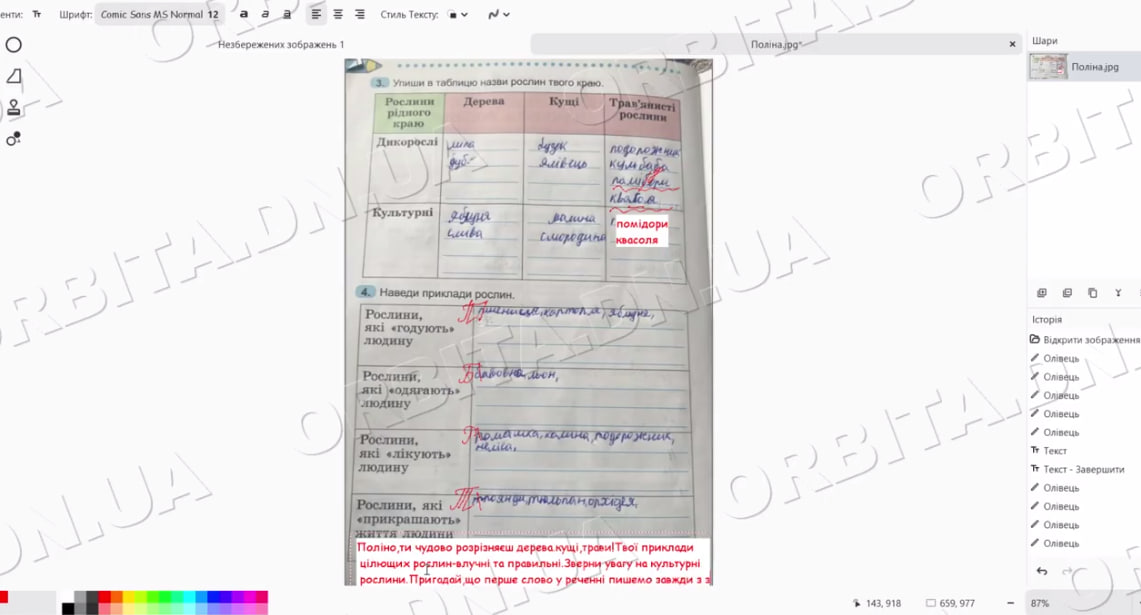 енти: Тт Шрифт: Comic Sans MS Normal 12 a a a Стиль Тексту:
Незбережених зображень 1 Поліна.jpg* Шари
Поліна.jpg
3. Упиши в таблицю назви рослин твого краю.
Рослини рідного краю Дерева Кущі Трав'янисті рослини
Дикорослі липа бузок подорожник
дуб ялівець кульбаба
помідори
квасоля
Культурні яблуня малина помідори
слива смородина квасоля
4. Наведи приклади рослин.
Рослини, Пшениця, картопля, яблуня,
які «годують»
людину
Рослини, Бавовна, льон,
які «одягають»
людину
Рослини, Ромашка, калина, подорожник,
які «лікують»
людину
Рослини, які Троянди, тюльпан, орхідея,
«прикрашають»
життя людини
Поліно,ти чудово розрізняєш дерева.кущі,трави!Твої приклади
цілющих рослин-влучні та правильні.Зверни увагу на культурні
рослини.Пригадай,що перше слово у реченні пишемо завжди з з
Історія
Відкрити зображення
Олівець
Олівець
Олівець
Олівець
Олівець
Тт Текст
Тт Текст - Завершити
Олівець
Олівець
Олівець
Олівець
143, 918 659, 977 87%
ORBITA.DN.UA